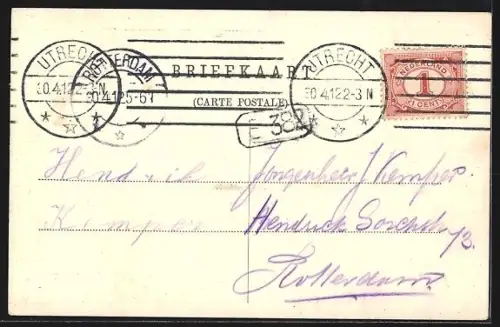 UTRECHT
30.4.12 2-3N
ROTTERDAM
30.4.12 5-6
BRIEFKAART
(CARTE POSTALE)
UTRECHT
30.4.12 2-3N
NEDERLAND
1
CENT
E 382
Hendrik
Kemper
J Kemper
Hendrick
Rotterdam